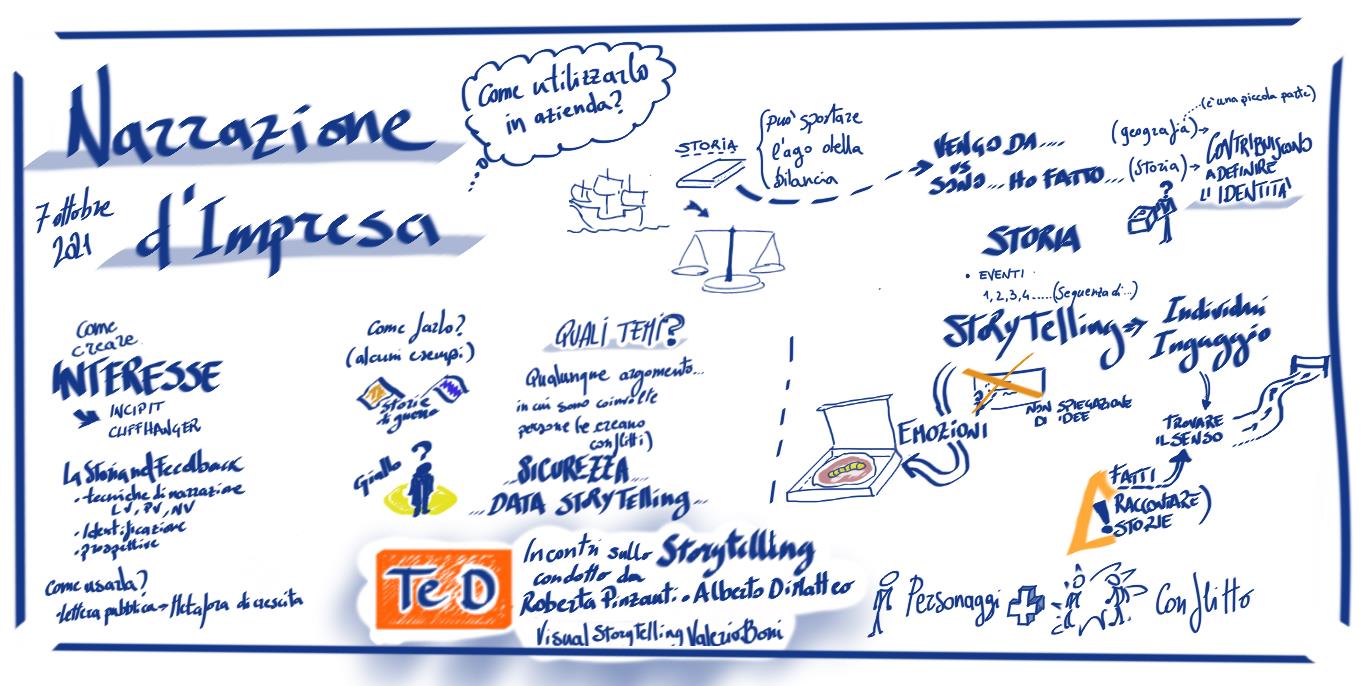 Narrazione
d'Impresa
7 ottobre
2021
Come utilizzarlo
in azienda?
STORIA
può spostare
l'ago della
bilancia
VENGO DA....
VS
SONO... HO FATTO...
(geografia)
(c'è una piccola parte)
(Storia)
CONTRIBUISCONO
A DEFINIRE
L'IDENTITÀ
STORIA
• EVENTI
1,2,3,4.....(Sequenza di...)
STORYTELLING
Individui
Ingaggio
NON SPIEGAZIONE
DI IDEE
EMOZIONI
TROVARE
IL SENSO
FATTI
RACCONTARE
STORIE
!
Personaggi
Conflitto
Come
creare
INTERESSE
INCIPIT
CLIFFHANGER
La Storia nel Feedback
• tecniche di narrazione
LV, PV, NV
• Identificazione
• prospettive
Come usarla?
-lettera pubblica → Metafora di crescita
Come farlo?
(alcuni esempi)
Storie
di guerra
Giallo
?
QUALI TEMI?
Qualunque argomento...
in cui sono coinvolte
persone (e creano
conflitti)
...SICUREZZA
...DATA STORYTELLING...
TeD
Incontri sullo Storytelling
condotto da
Roberta Pinzauti • Alberto DiMatteo
Visual Storytelling Valerio Boni